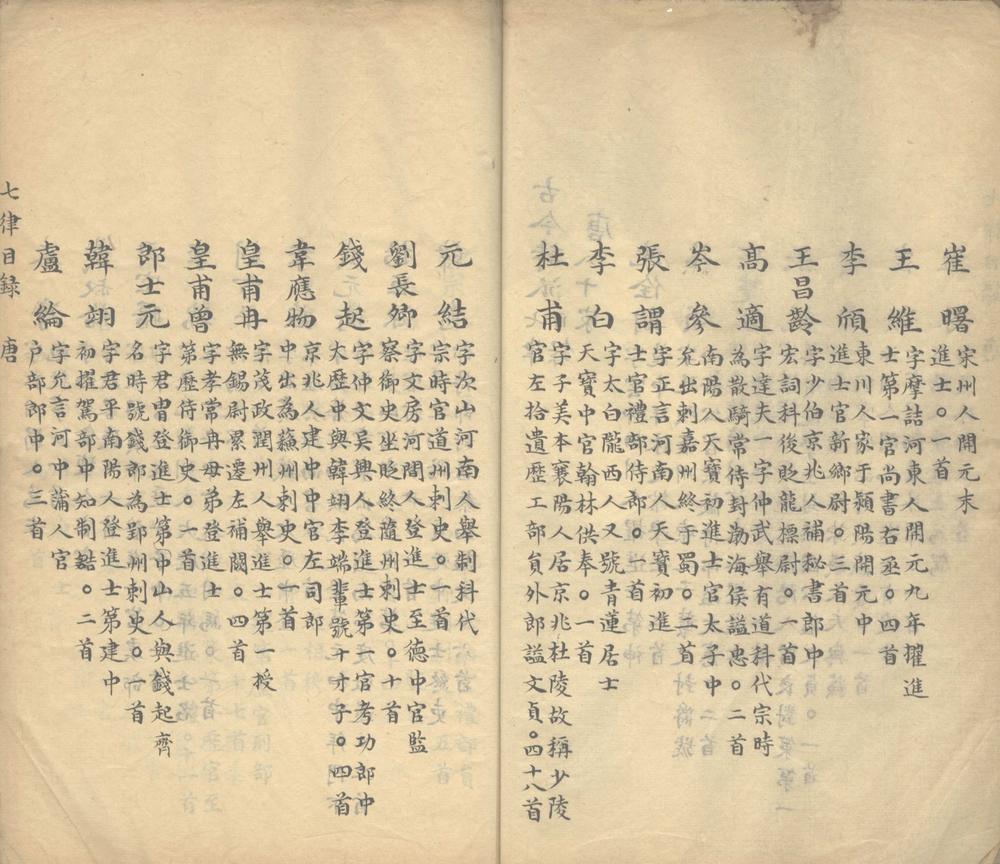 崔曙
宋州人開元末
進士。一首
王維
字摩詰河東人開元九年擢進
士第一官尚書右丞。四首
李頎
東川人家于潁陽開元中
進士官新鄉尉。三首
王昌齡
字少伯京兆人補秘書郎中
宏詞科後貶龍標尉。一首
高適
字達夫一字仲武舉有道科代宗時
為散騎常侍封渤海侯諡忠。二首
岑參
南陽人天寶初進士官太子中
允出刺嘉州終于蜀。二首
張謂
字正言河南人天寶初進
士官禮部侍郎。一首
李白
字太白隴西人又號青蓮居士
天寶中官翰林供奉。一首
杜甫
字子美本襄陽人居京兆杜陵故稱少陵
官左拾遺歷工部員外郎諡文貞。四十八首
元結
字次山河南人舉制科代
宗時官道州刺史。一首
劉長卿
字文房河間人登進士至德中官監
察御史坐貶終隨州刺史。十首
錢起
字仲文吳興人登進士第一官考功郎中
大歷中與韓翊李端輩號十才子。四首
韋應物
京兆人建中中官左司郎
中出為蘇州刺史。一首
皇甫冉
字茂政潤州人舉進士第一授
無錫尉累遷左補闕。四首
皇甫曾
字孝常冉母弟登進士
第歷侍御史。一首
郎士元
字君冑登進士第中山人與錢起齊
名時號錢郎為郢州刺史。一首
韓翊
字君平南陽人登進士第建中
初擢駕部中知制誥。二首
盧綸
字允言河中蒲人官
戶部郎中。三首
七律目錄 唐